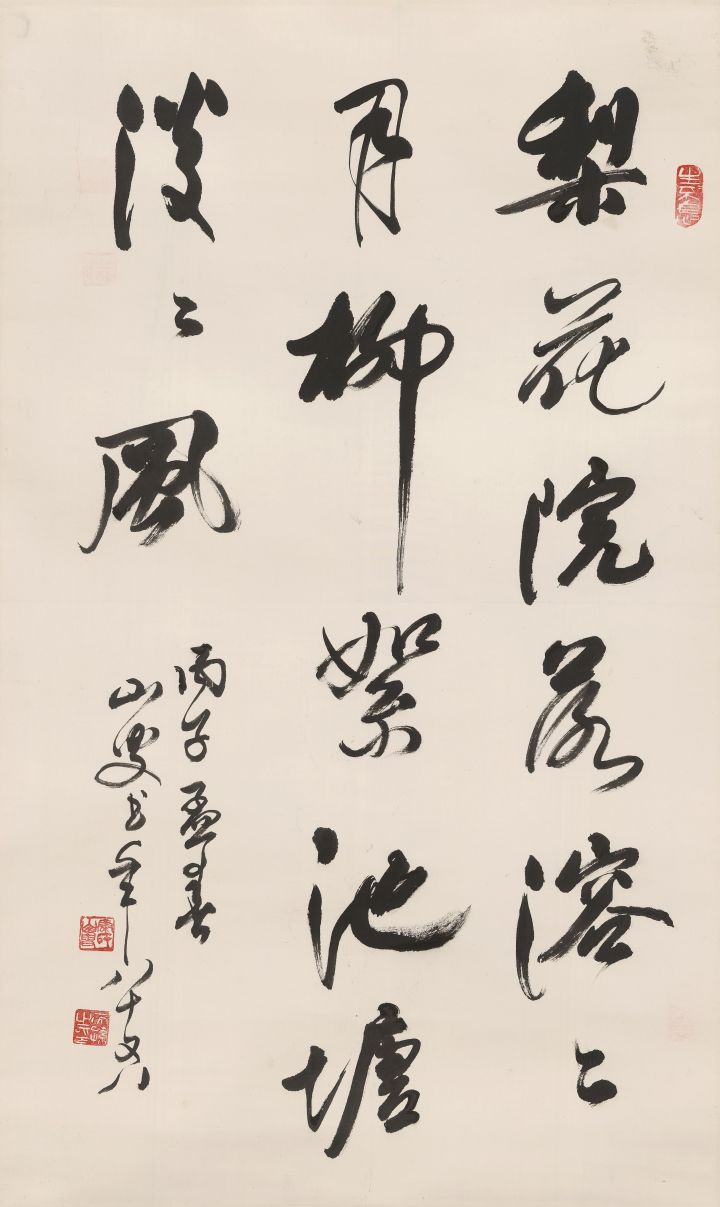 梨花院落溶〻
月柳絮池塘
淡〻風
丙子孟春
山叟书年八十又八